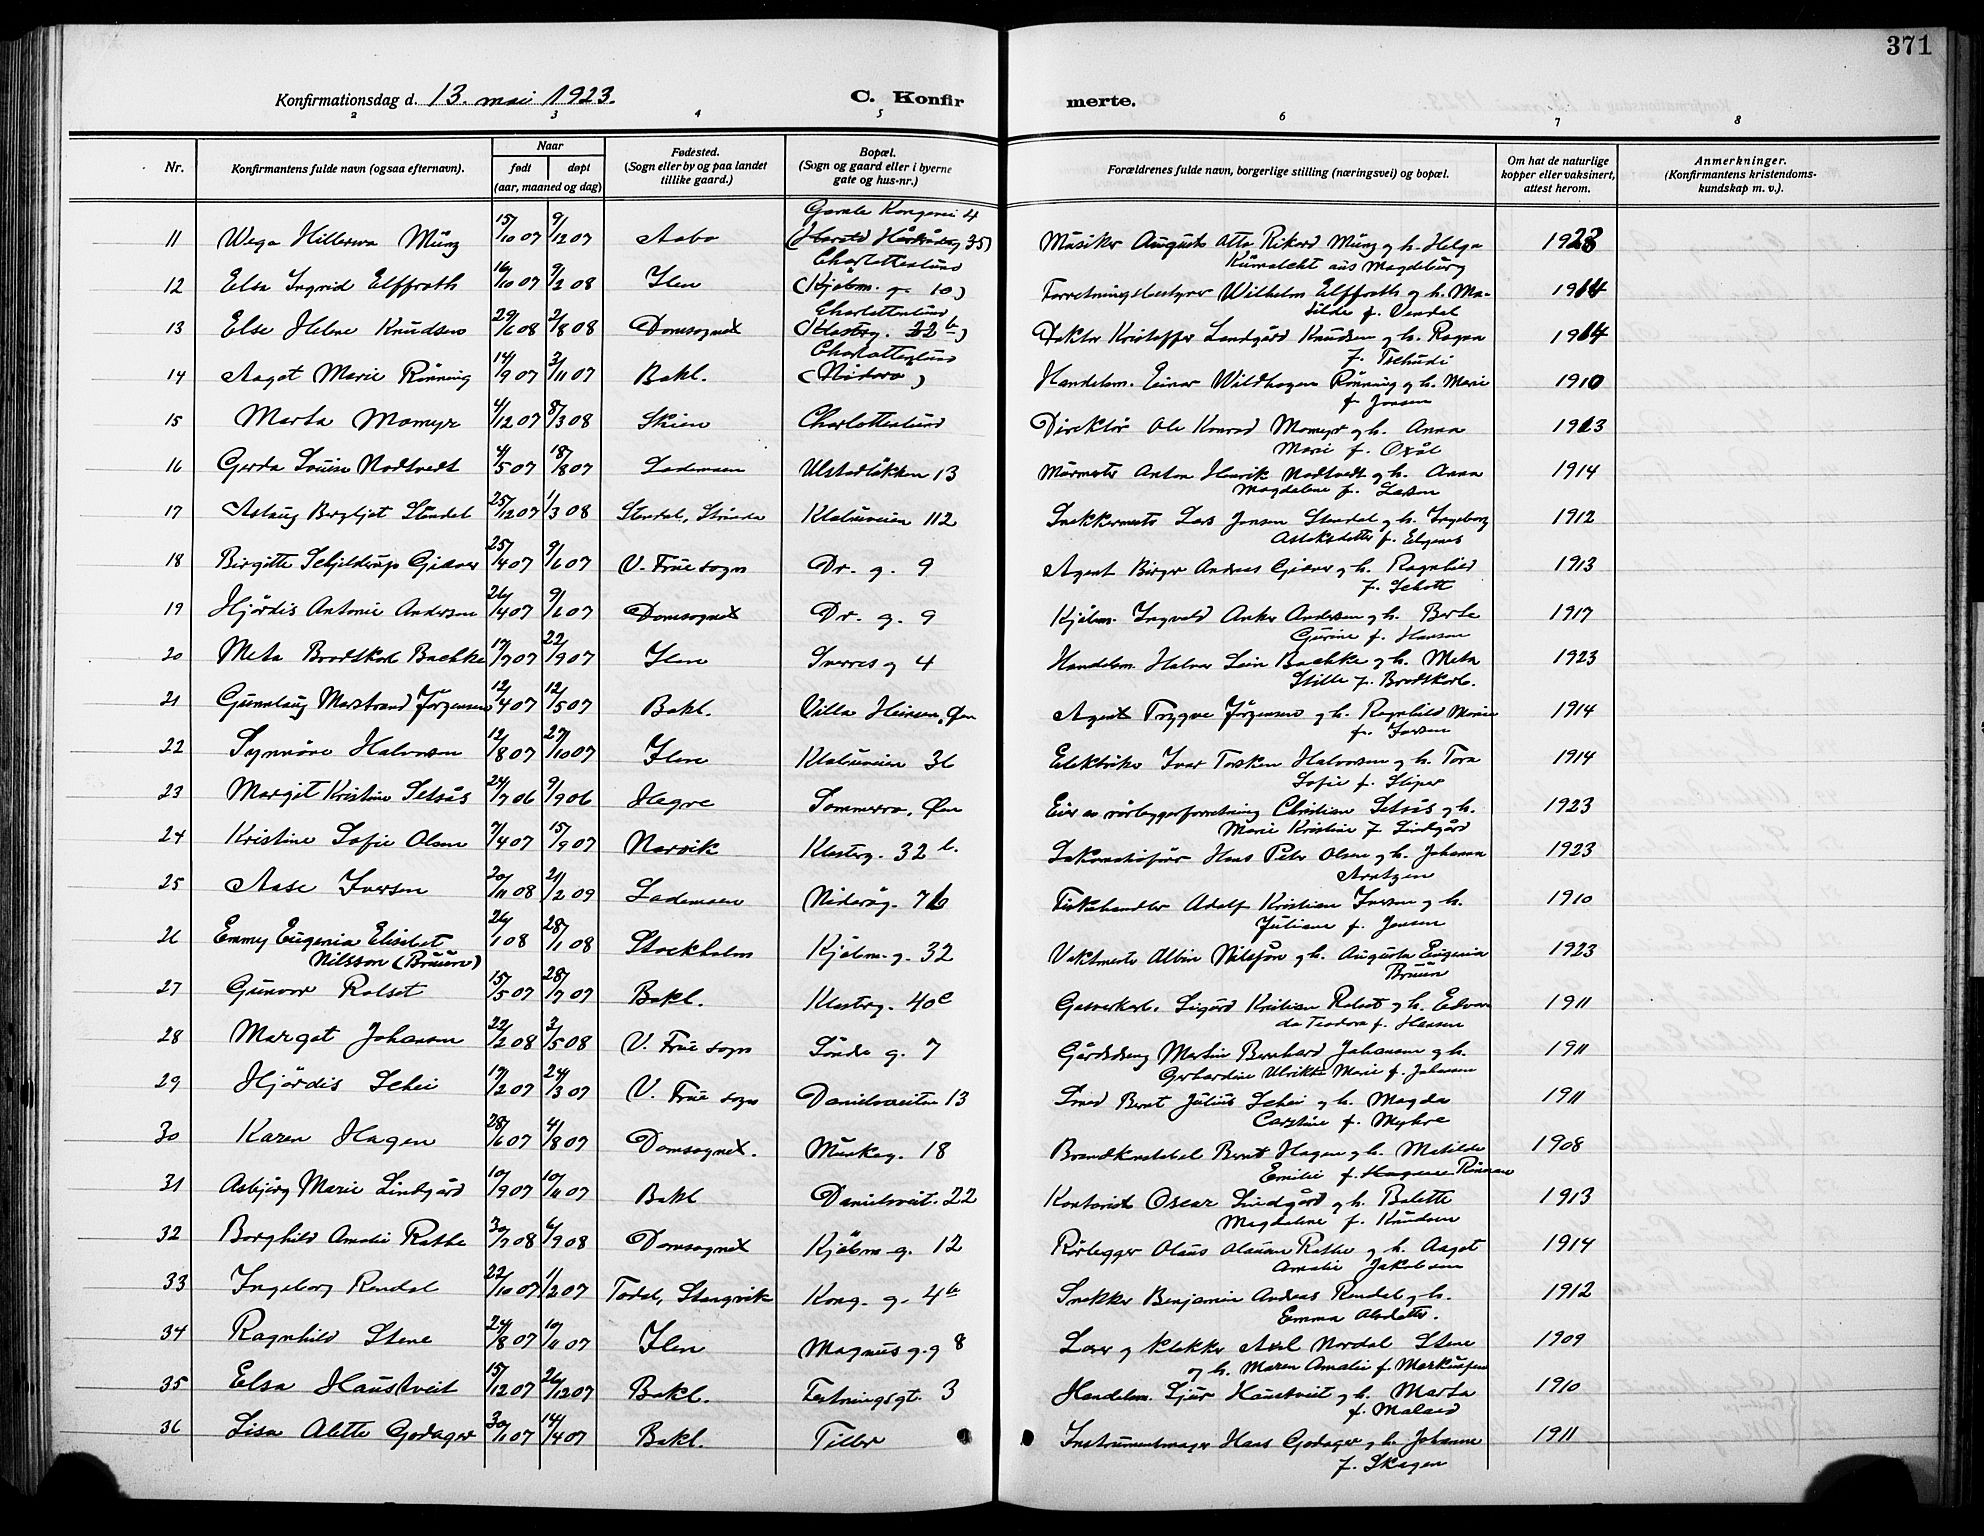 371
Konfirmationsdag d. 13. mai 1923. C. Konfir merte.
2 3 4 5 6 7 8
Nr. Konfirmantens fulde navn (ogsaa efternavn). Naar født døpt (aar, maaned og dag) Fødested. (Sogn eller by og paa landet tillike gaard.) Bopæl. (Sogn og gaard eller i byerne gate og hus-nr.) Forældrenes fulde navn, borgerlige stilling (næringsvei) og bopæl. Om hat de naturlige kopper eller vaksinert, attest herom. Anmerkninger. (Konfirmantens kristendoms-kundskap m. v.).
Gamle Kongevei 4
11 Wega Münz 15/10 07 9/12 07 Aabo 35) Musiker August Otto Rikard Münz g. h. Helga 1923
Charlottenlund aus Magdeburg
12 Elsa Ingrid Elffroth 16/10 07 9/2 08 Ilen (Kjøbm. g. 10) Forretningsbestyrer Wilhelm Elffroth g. h. Ma-
Charlottenlund tilde f. Vendel 1914
13 Else Helene Knudsen 29/6 08 2/8 08 Domsognet (Klosterg. 22 b) Doktor Kristoffer Landgård Knudsen g. h. Ragna 1914
Charlottenlund f. Tschudi
14 Aagot Marie Rönning 14/9 07 3/11 07 Bakl. (Nidarø) Handelsm. Einar Wildhagen Rönning g. h. Marie 1910
f. Jensen
15 Marta Momyr 4/12 07 8/3 08 Skien Charlottenlund Direktör Ole Konrad Momyr g. h. Anna 1913
Marie f. Oxål
16 Gerda Louise Nodtvedt 4/5 07 18/8 07 Lademoen Ulstadløkken 13 Murmester Anton Henrik Nodtvedt g. h. Anna 1914
Magdalene f. Larsen
17 Aslaug Bergljot Stendal 25/12 07 1/3 08 Stendal, Strinda Klæbuveien 112 Snekkermester Lars Jonsen Stendal g. h. Ingeborg 1912
Aslaksdatter f. Elgenes
18 Birgitte Schjelderup Giæver 25/4 07 9/6 07 V. Frue sogn Dr. g. 9 Agent Birger Andreas Giæver g. h. Ragnhild 1913
f. Schøtt
19 Hjördis Antonie Andersen 26/4 07 9/6 07 Domsognet Dr. g. 9 Kjøbm. Ingvald Anker Andersen g. h. Berte 1917
Gurine f. Hansen
20 Meta Brodtkorb Bachke 17/7 07 22/9 07 Ilen Sverres g 4 Handelsm. Halvor Lein Bachke g. h. Meta 1923
Stille f. Brodtkorb.
21 Gunnlaug Marstrand Jörgensen 12/4 07 12/5 07 Bakl. Villa Heinsen, Øen Agent Trygve Jörgensen g. h. Ragnhild Marie 1914
f. Iversen
22 Synnöve Halvorsen 12/8 07 27/10 07 Ilen Klæbuveien 36 Elektriker Ivar Torsken Halvorsen g. h. Tora 1914
Sofie f. Sliper
23 Margit Kristine Setsås 24/7 06 9/9 06 Hegre Sommerro, Øen Eier av rörleggerforretning Christian Setsås g. h. 1923
Marie Kristine f. Lindgård
24 Kristine Sofie Olsen 7/4 07 15/9 07 Narvik Klosterg. 32 b. Lokomotivförer Hans Peter Olsen g. h. Johanna 1923
Arntzen
25 Aase Iversen 20/11 08 21/2 09 Lademoen Nidarøg. 7 b Fiskehandler Adolf Kristian Iversen g. h. 1910
Juliane f. Jensen
26 Emmy Eugenia Elisabet 26/1 08 28/1 08 Stockholm Kjøbm. g. 32 Vaktmester Albin Nilsson g. h. Augusta Eugenia 1923
Nilsson (Bruün) Bruün
27 Gunvor Rolset 15/5 07 28/7 07 Bakl. Klosterg. 40 c Gasverkarb. Sigurd Kristian Rolset g. h. Edvar- 1911
da Teodora f. Hansen
28 Margot Johansen 22/2 08 3/5 08 V. Frue sogn Söndre g. 7 Gårdsdreng Martin Bernhard Johansen g. h. 1911
Gerhardine Ulrikke Marie f. Johansen
29 Hjördis Schei 17/2 07 24/3 07 V. Frue sogn Danielsveiten 13 Smed Bernt Julius Schei g. h. Magda 1911
Carstine f. Myhre
30 Karen Hagen 28/6 07 4/8 07 Domsognet. Munkeg. 18 Brandkonstabel Bernt Hagen g. h. Matilde 1908
Emilie f. Hagene
31 Asbjörg Marie Lindgård 10/9 07 10/11 07 Bakl Danielsveit. 22 Kontorist Oscar Lindgård g. h. Bolette 1913
Magdalene f. Knudsen
32 Borghild Amalie Rathe 30/7 08 6/9 08 Domsognet Kjøbm. g. 12 Rørlegger Olaus Olausen Rathe g. h. Aagot 1914
Amalie Jakobsen
33 Ingeborg Rendal 22/10 07 1/12 07 Todal, Stangvik Kong. g. 4 b Snekker Benjamin Andreas Rendal g. h. 1912
Emma Olsdatter.
34 Ragnhild Stene 24/8 07 10/11 07 Ilen Magnus g. g 8 Lærer g klokker Axel Nordal Stene 1909
og h. Maren Amalie f. Markussen
35 Elsa Haustveit 15/12 07 26/12 07 Bakl. Festningsgt. 3 Handelsm. Sjur Haustveit g. h. Marta 1910
f. Malsed
36 Lisa Alette Godager 30/1 07 14/4 07 Bakl. Tiller Instrumentmager Hans Godager g. h. Johanne 1911
f. Skagen